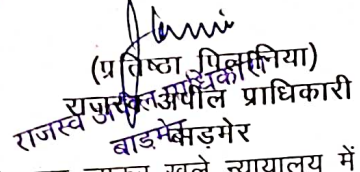 (प्रतिष्ठा पिलानिया)
राजस्व अपील प्राधिकारी
बाड़मेर
राजस्व अपील प्राधिकारी
बाड़मेर
खुले न्यायालय में